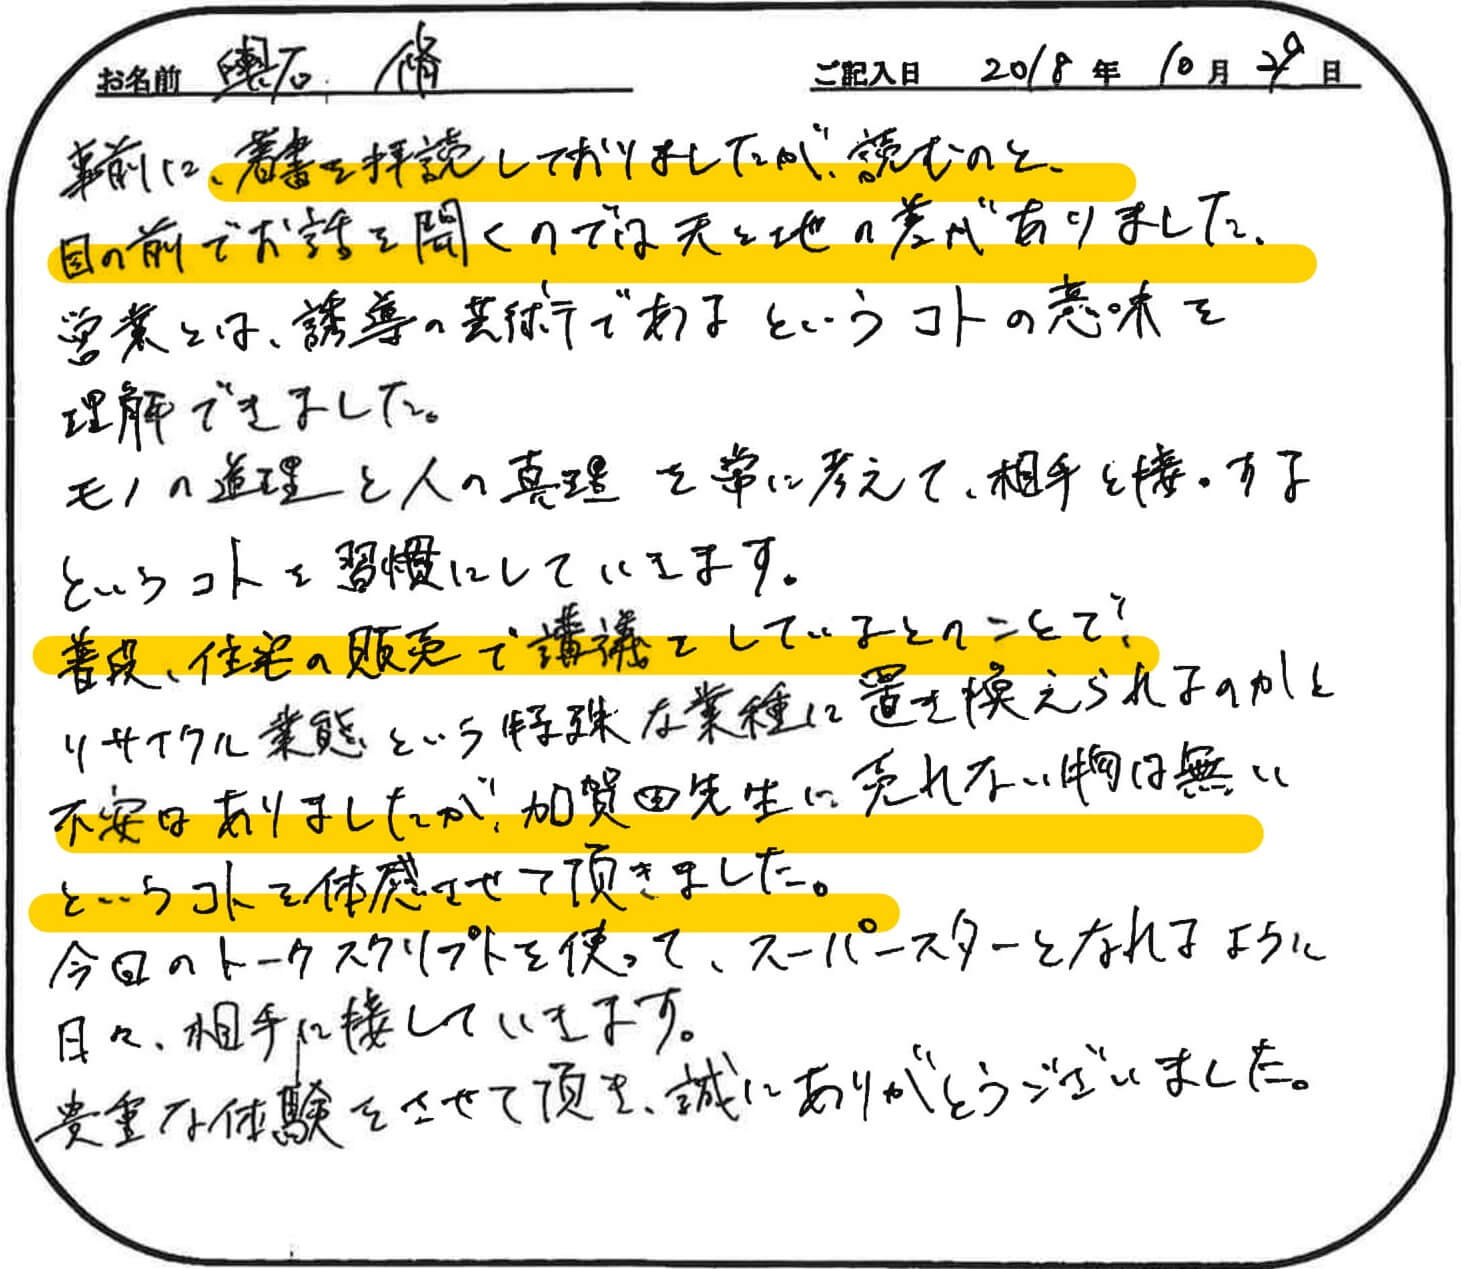 お名前 輿石 脩 ご記入日 2018年 10月 29日
事前に、著書を拝読しておりましたが、読むのと、
目の前でお話を聞くのでは天と地の差がありました。
営業とは、誘導の芸術であるというコトの意味を
理解できました。
モノの道理と人の真理を常に考えて、相手と接。する
というコトを習慣にしていきます。
普段、住宅の販売で講議をしているとのことで、
リサイクル業態という特殊な業種に置き換えられるのかと
不安はありましたが、加賀田先生に売れない物は無い
というコトを体感させて頂きました。
今回のトークスクリプトを使って、スーパースターとなれるように
日々、相手に接していきます。
貴重な体験をさせて頂き、誠にありがとうございました。